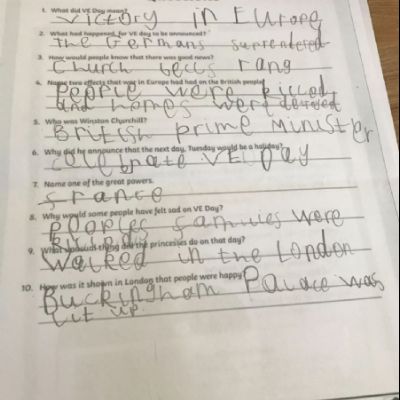 1. What did VE Day mean?
Victory in Europe
2. What had happened, for VE day to be announced?
The Germans surrendered
3. How would people know that there was good news?
Church bells rang
4. Name two effects that war in Europe had had on the British people
People were killed
and homes were
5. Who was Winston Churchill?
British prime Minister
6. Why did he announce that the next day, Tuesday would be a holiday?
VE Day
7. Name one of the great powers.
france
8. Why would some people have felt sad on VE Day?
Peoples families were
9. What unusual thing did the princesses do on that day?
Walked in the London
10. How was it shown in London that people were happy?
Buckingham Palace was
lit up